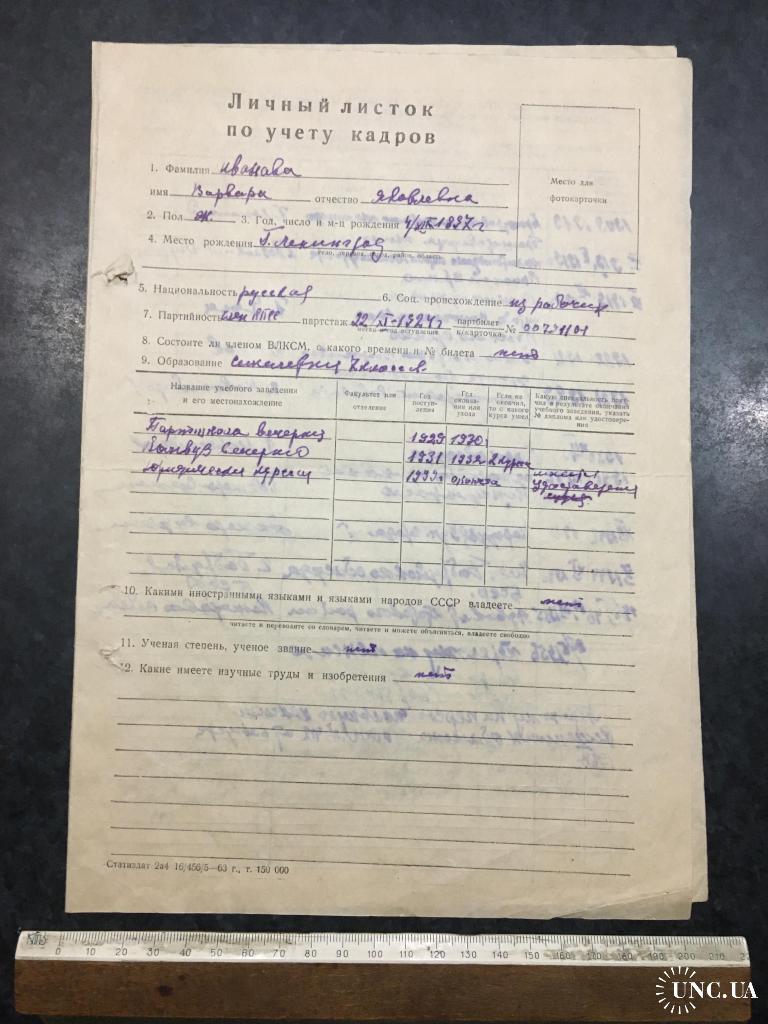 Личный листок
по учету кадров
Место для
фотокарточки
1. Фамилия Иванова
имя Варвара отчество Яковлевна
2. Пол Ж. 3. Год, число и м-ц рождения 4/XII 1897 г
4. Место рождения г. Ленинград
село, деревня, город, район, область
5. Национальность русская 6. Соц. происхождение из рабочих
7. Партийность член КПСС партстаж 22/XI-1924 г партбилет № 00721101
месяц и год вступления к/карточка
8. Состоите ли членом ВЛКСМ, с какого времени и № билета нет
9. Образование 7 классов.
Название учебного заведения и его местонахождение
Факультет или отделение
Год поступления
Год окончания или ухода
Если не окончил, то с какого курса ушел
Какую специальность получил в результате окончания учебного заведения, указать № диплома или удостоверения
Партшкола вечерняя 1929 1930
вечерний 1931 1932 2 курса
юридические курсы 1933
10. Какими иностранными языками и языками народов СССР владеете нет
читаете и переводите со словарем, читаете и можете объясняться, владеете свободно
11. Ученая степень, ученое звание нет
12. Какие имеете научные труды и изобретения нет
Статиздат 2а4 16/456/5—63 г., т. 150 000
0 10 20 30 40 50 60 70 80 90 100 110 120 130 140 150 160 170 180 190 200 210
UNC.UA